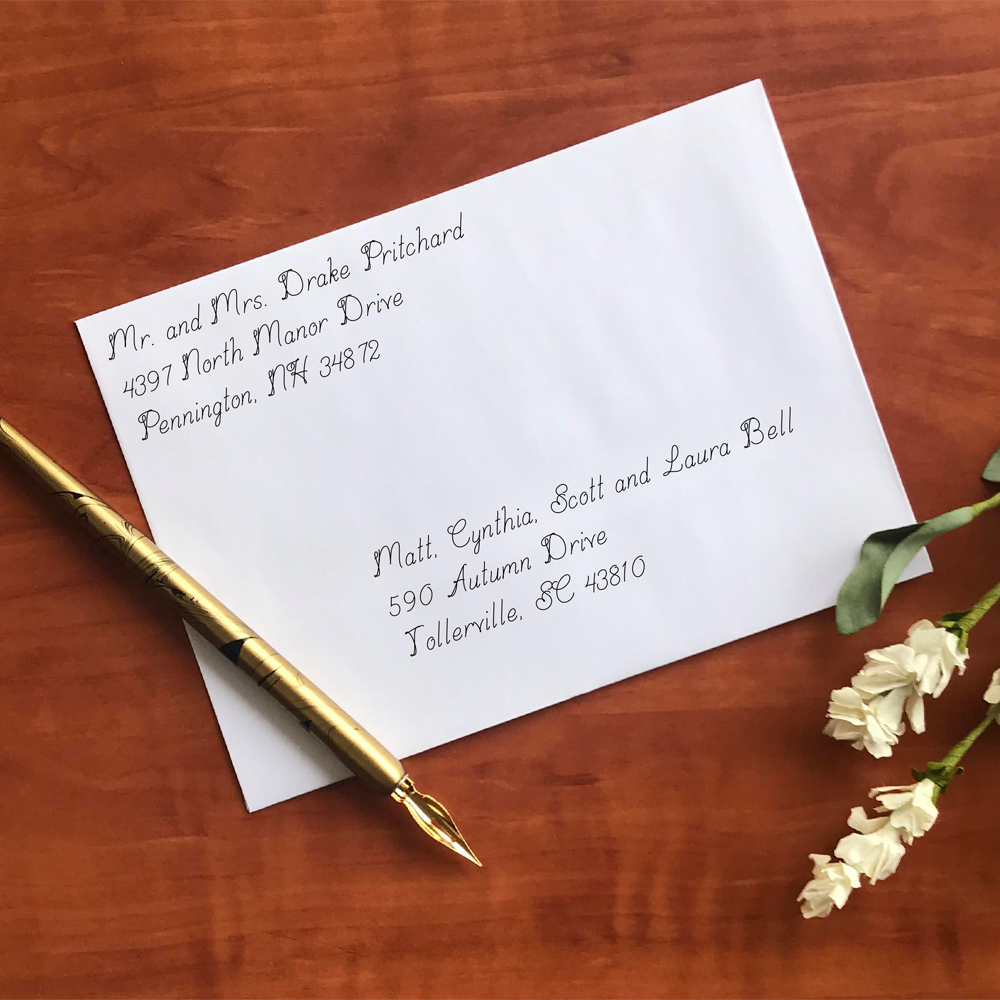 Mr. and Mrs. Drake Pritchard
4397 North Manor Drive
Pennington, NH 34872
Matt, Cynthia, Scott and Laura Bell
590 Autumn Drive
Tollerville, SC 43810